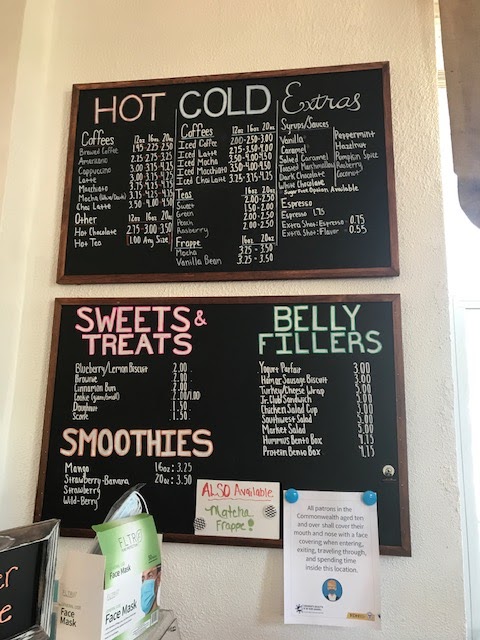 HOT
Coffees 12oz 16oz 20oz
Brewed Coffee 1.95-2.25-2.50
Americano 2.25-2.75-3.25
Cappuccino 3.00-3.75-4.25
Latte
Macchiato
Mocha
Chai Latte 3.50-4.00-4.50
Other 12oz 16oz 20oz
Hot Chocolate 2.75-3.00-3.50
Hot Tea 1.00 Any Size
COLD
Coffees 12oz 16oz 20oz
Iced Coffee 2.00-2.50-3.00
Iced Latte
Iced Mocha
Iced Macchiato
Iced Chai Latte
Teas 16oz 20oz
Sweet 1.50-2.00
Green 2.00-2.50
Peach 2.00-2.50
Rasberry 2.00-2.50
Frappe 16oz 20oz
Mocha 3.25-3.50
Vanilla Bean 3.25-3.50
Extras
Syrups/Sauces
Vanilla
Caramel
Salted Caramel
Toasted Marshmallow
Dark Chocolate
White Chocolate
Sugar Free Option Available
Peppermint
Hazelnut
Pumpkin Spice
Rasberry
Coconut
Espresso
Espresso 1.75
Extra Shot: Espresso - 0.75
Extra Shot: Flavor - 0.55
SWEETS &
TREATS
Blueberry/Lemon Biscuit 2.00
Brownie 2.00
Cinnamon Bun 2.00
Cookie 2.00/1.00
Doughnut 1.50
Scone 1.50
SMOOTHIES
Mango 16oz: 3.25
Strawberry-Banana 20oz: 3.50
Strawberry
Wild-Berry
BELLY
FILLERS
Yogurt Parfait 3.00
Ham or Sausage Biscuit 3.00
Turkey/Cheese Wrap 5.00
Jr. Club Sandwich 5.00
Chicken Salad Cup 3.00
Southwest Salad 5.00
Market Salad 5.00
Hummus Bento Box 4.75
Protein Bento Box 4.75
ALSO Available
Matcha
Frappe!
All patrons in the
Commonwealth aged ten
and over shall cover their
mouth and nose with a face
covering when entering,
exiting, traveling through,
and spending time
inside this location.
FLTR
Face Mask
Face Mask
Face
Mask